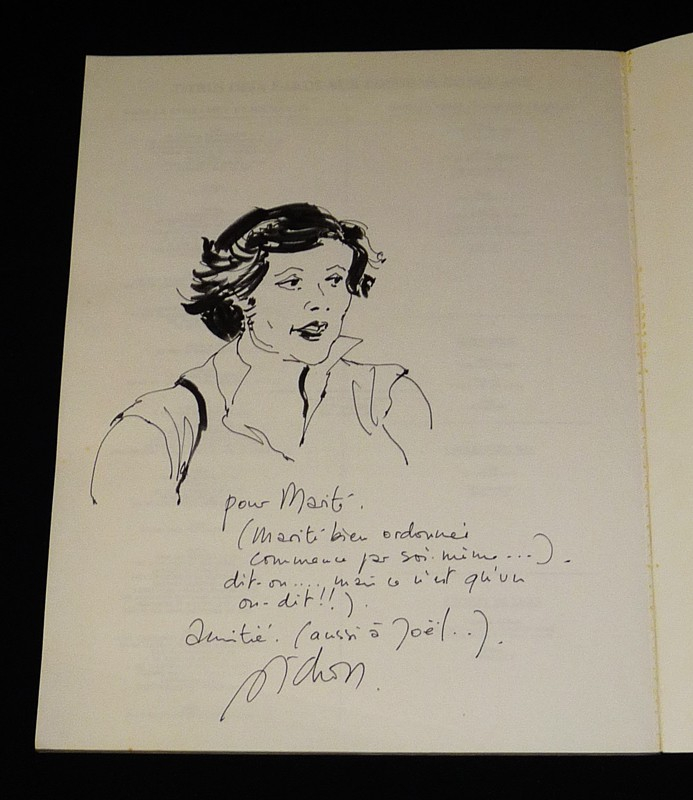 pour Marité.
(Marité bien ordonnée
commence par soi-même...).
dit-on.... mais ce n'est qu'un
on-dit!!).
Amitié. (aussi à Joël..).
Pichon.